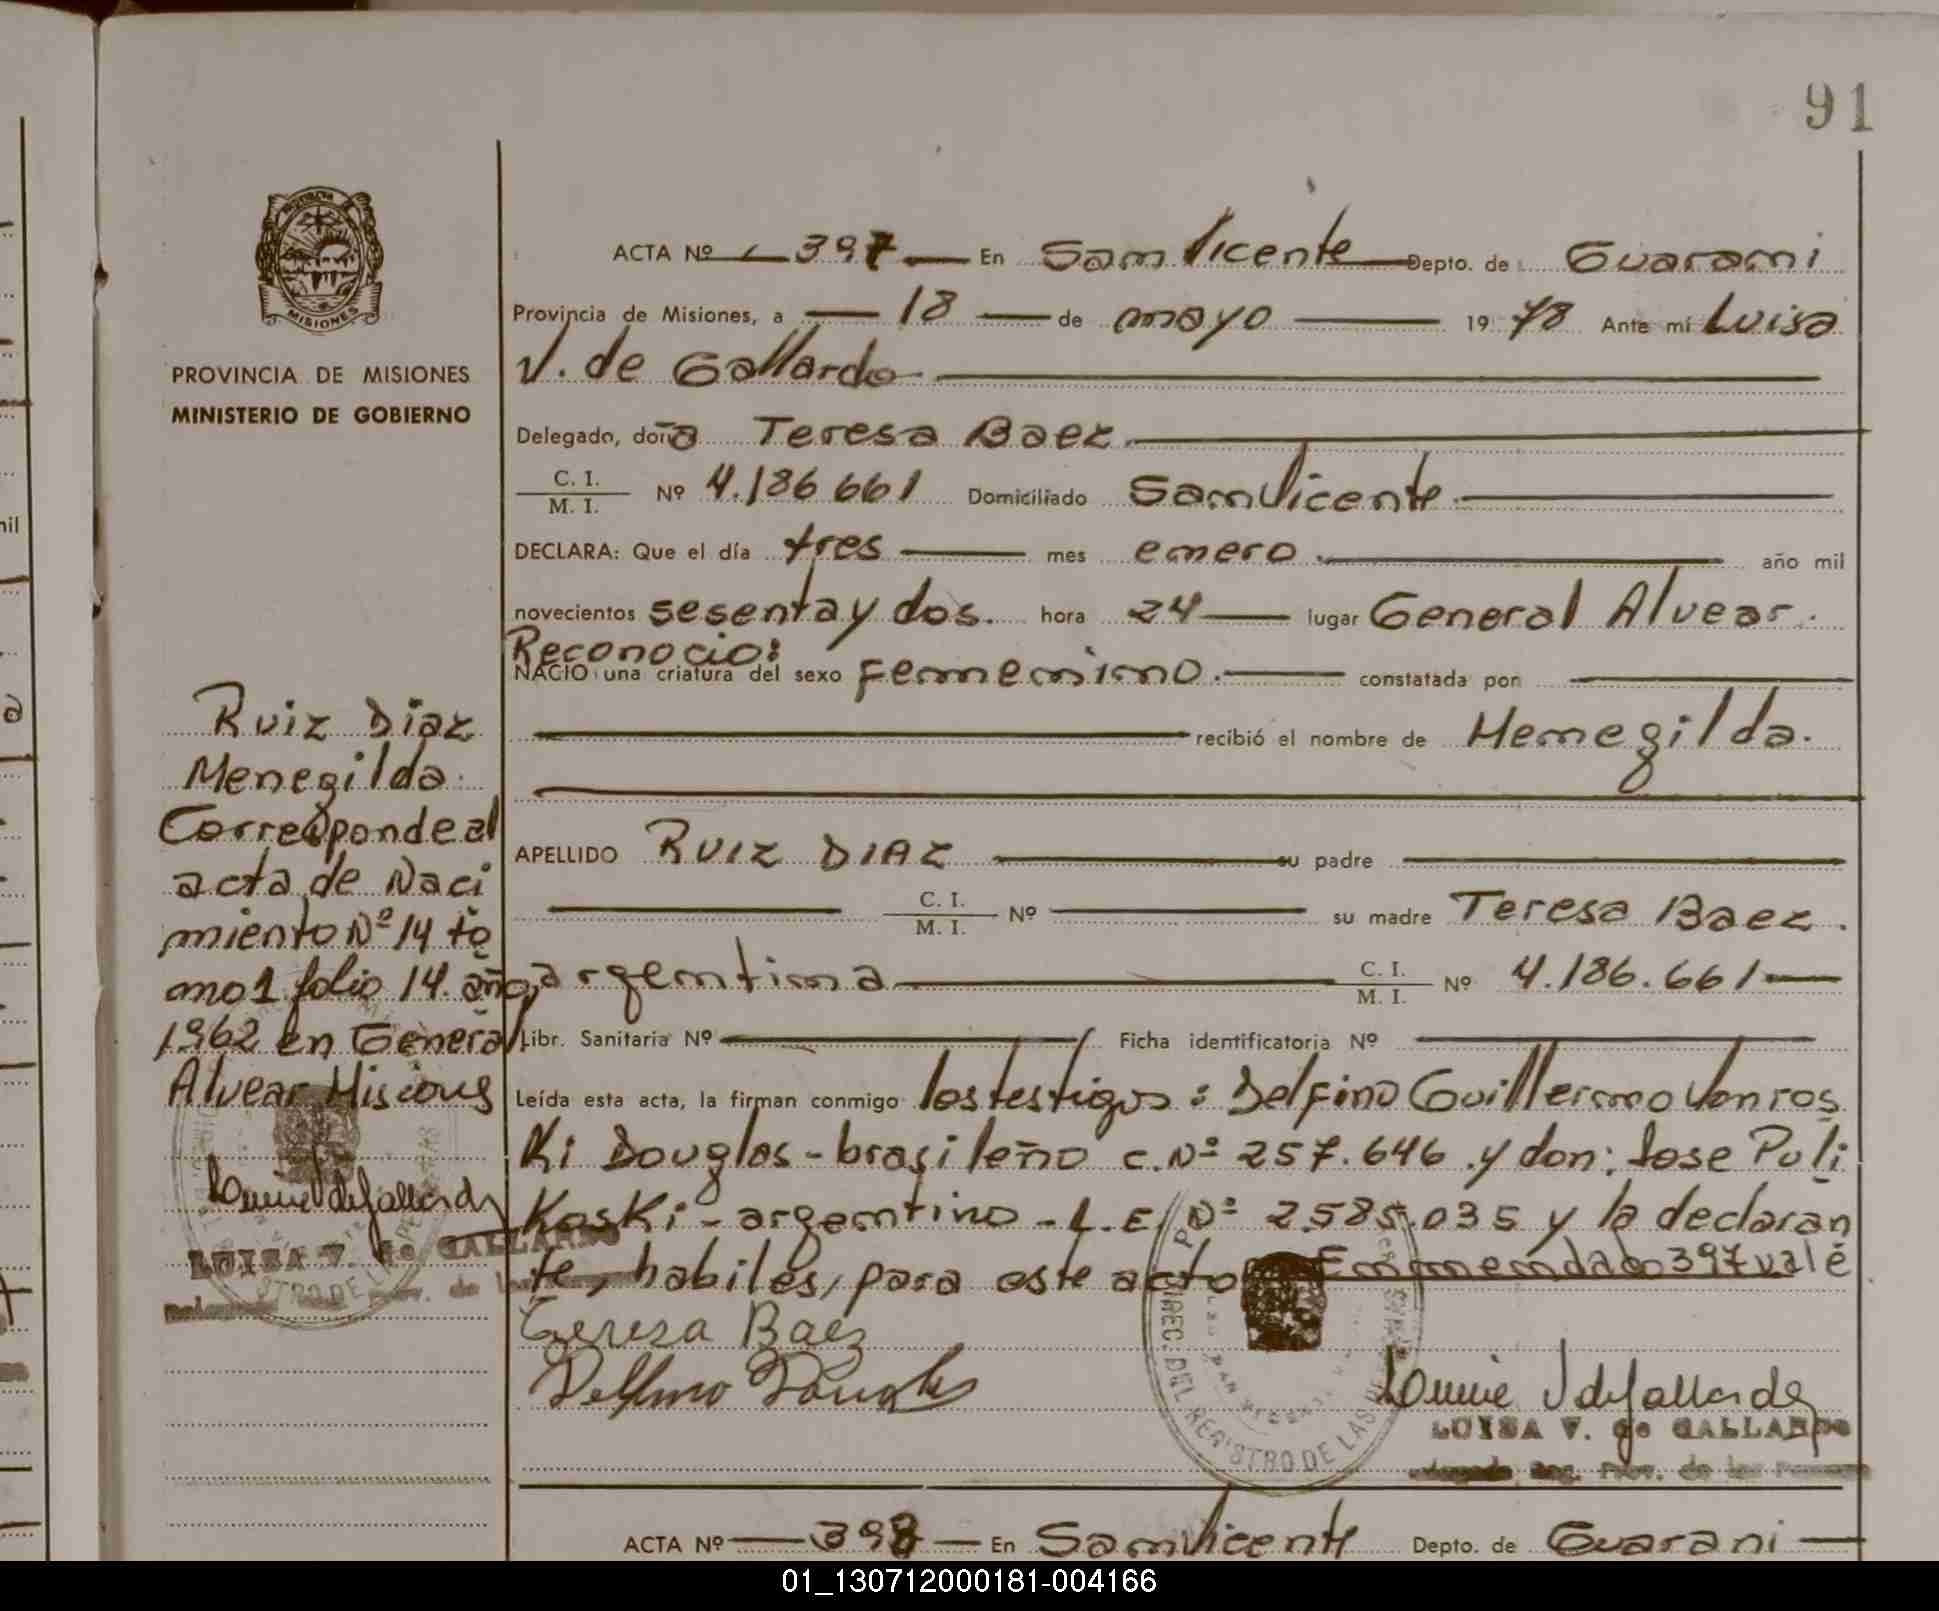 91
MISIONES
PROVINCIA DE MISIONES
MINISTERIO DE GOBIERNO
Ruiz Diaz
Menegilda
Corresponde al
acta de Naci
miento Nº 14 to
mo 1 folio 14. año
1962 en General
Alvear Misiones
LUISA V. de GALLARDO
ACTA Nº 397 En San Vicente Depto. de Guarani
Provincia de Misiones, a 18 de mayo 1978 Ante mi Luisa
V. de Gallardo
Delegado, doña Teresa Baez
C. I.
M. I. Nº 4.186.661 Domiciliado San Vicente
DECLARA: Que el día tres mes enero año mil
novecientos sesenta y dos. hora 24 lugar General Alvear.
Reconocio:
NACIO una criatura del sexo femenino. constatada por
recibió el nombre de Menegilda.
APELLIDO RUIZ DIAZ su padre
C. I.
M. I. Nº su madre Teresa Baez.
argentina C. I.
M. I. Nº 4.186.661
Libr. Sanitaria Nº Ficha identificatoria Nº
Leída esta acta, la firman conmigo los testigos: Delfino Guillermo Vonros
Ki Douglas - brasileño c. Nº 257.646 y don: Jose Puli
Koski - argentino - L.E. Nº 2585.035 y la declaran
te, habiles, para este acto Enmendado 397 vale
Teresa Baez
Delfino Douglas
LUISA V. de GALLARDO
Delegada Reg. Prov. de las Personas
ACTA Nº 398 En San Vicente Depto. de Guarani
01_130712000181-004166